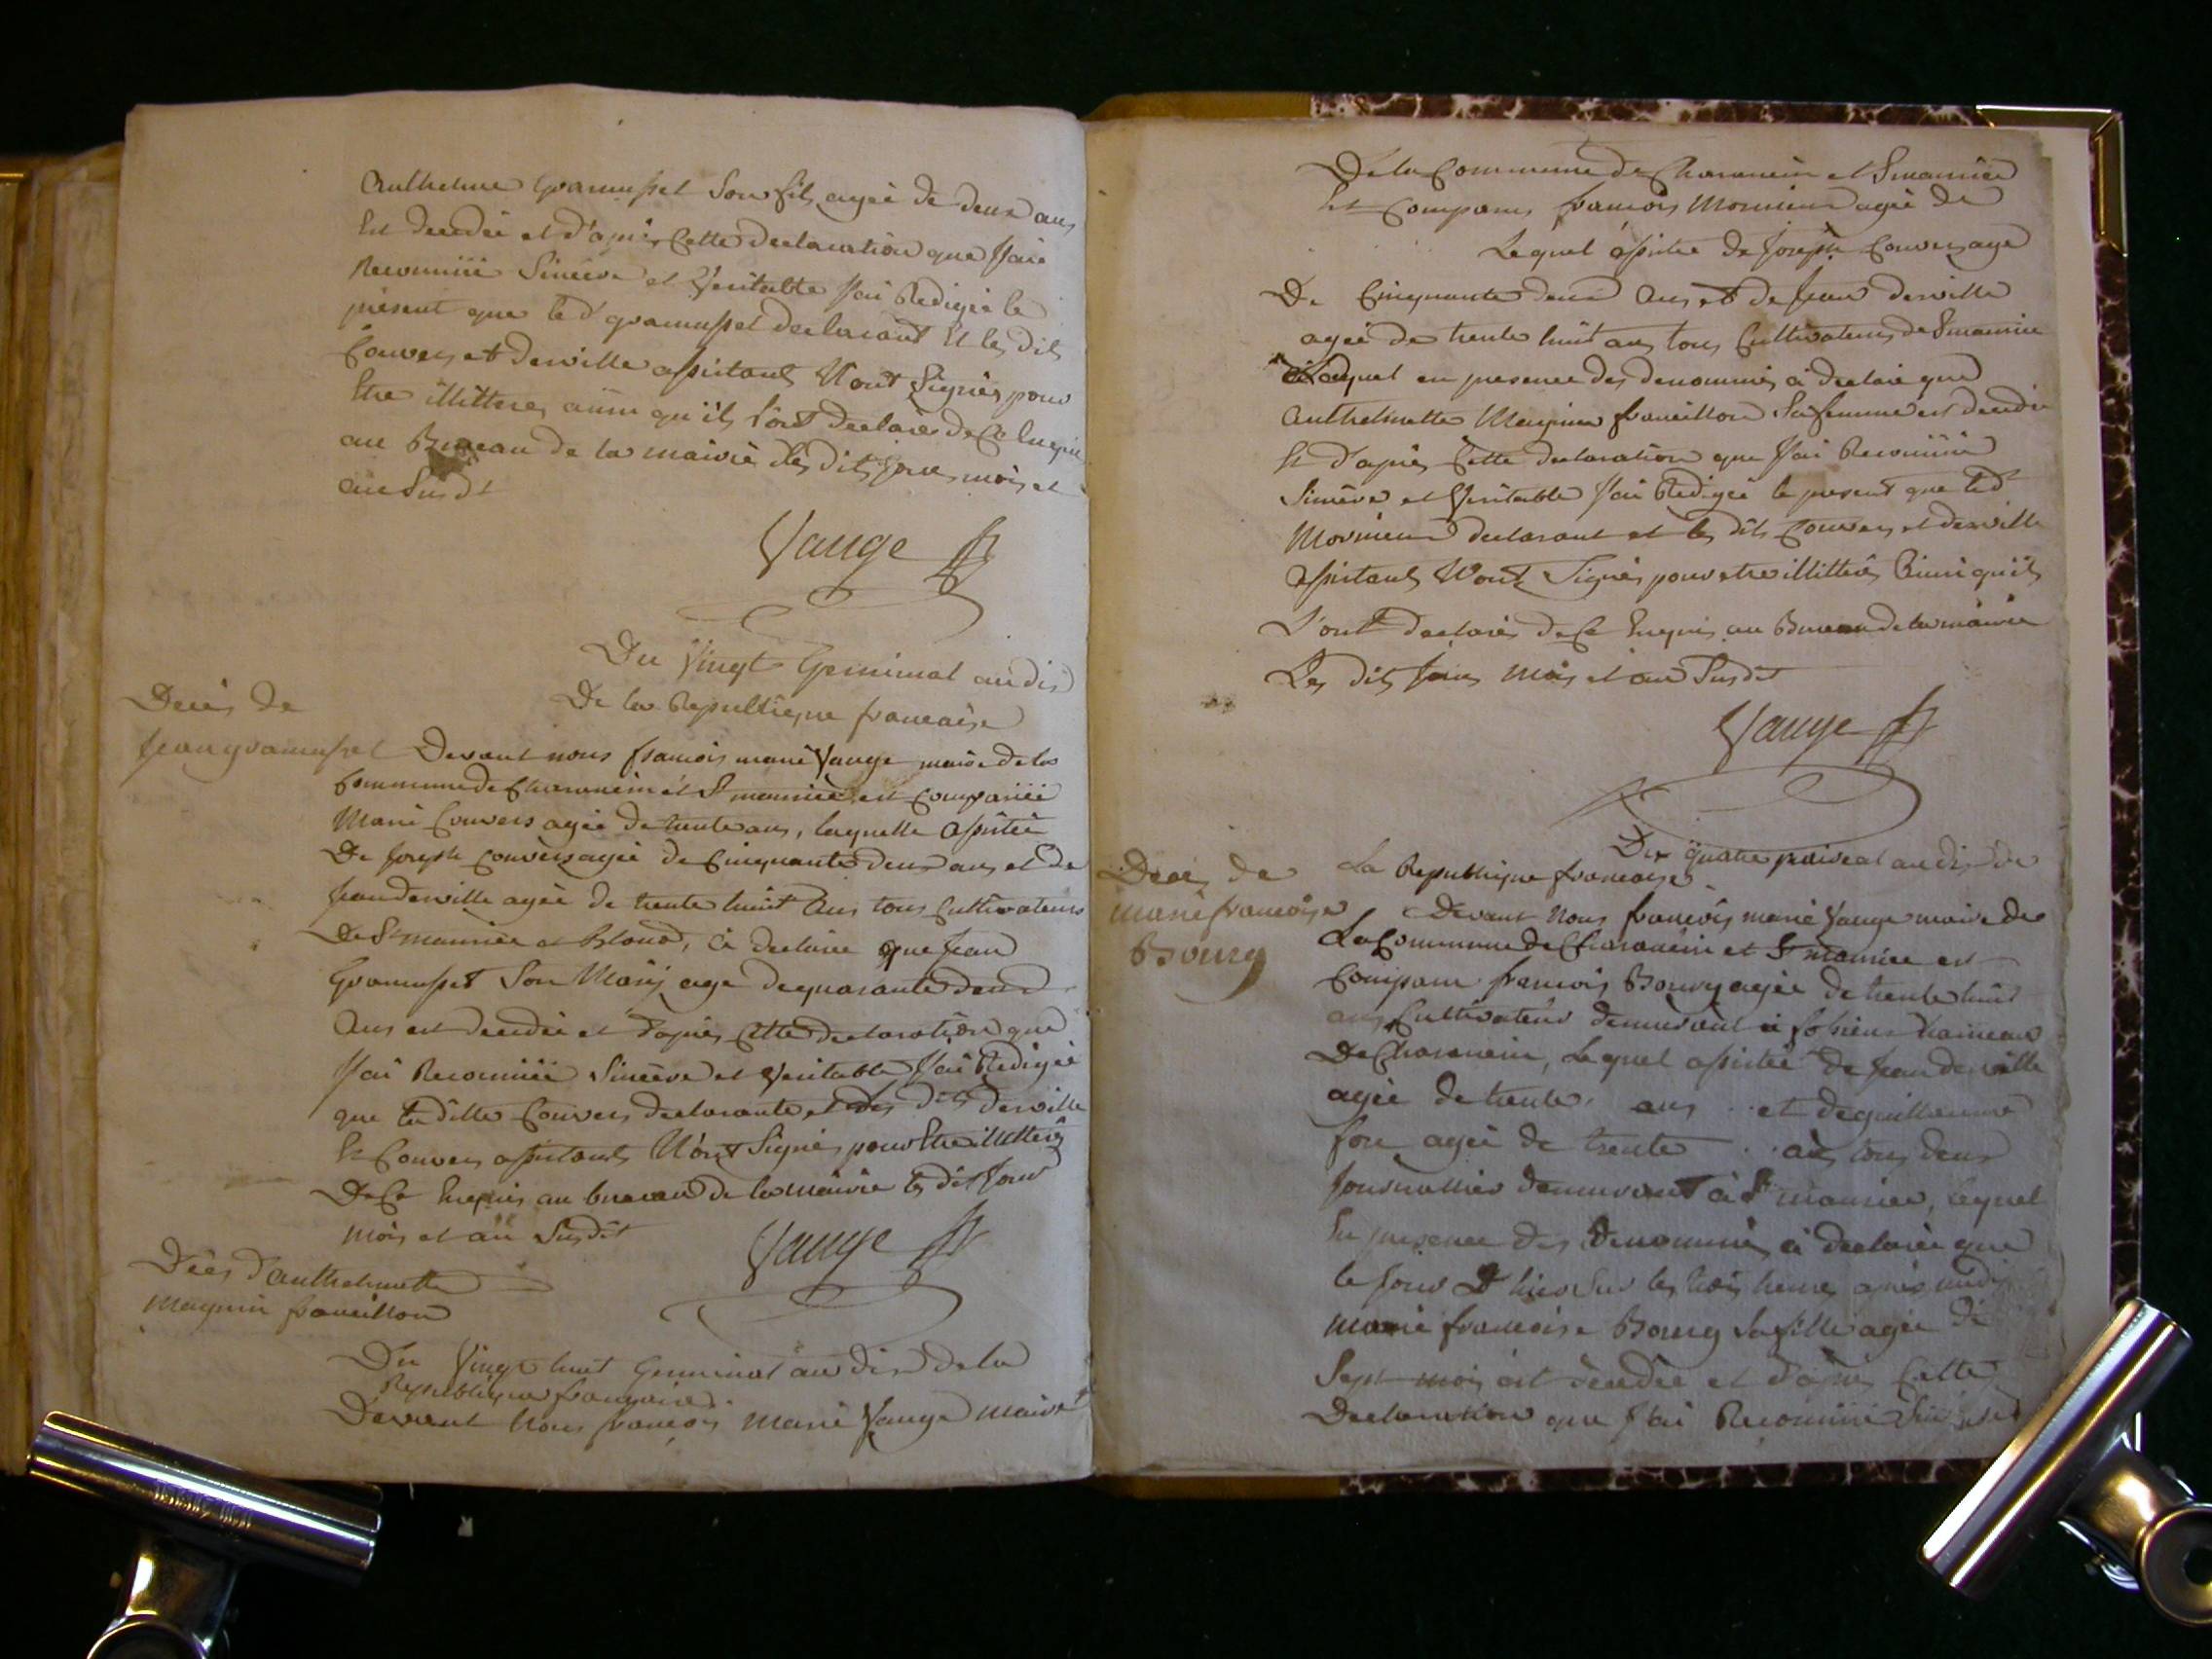 Anthelme Gramusset Son fils agée de deux ans
Est decedée et d'aprés Cette declaration que J'aie
Reconnüe Sincère et Veritable J'ai Redigée le
présent que led gramusset declarant Et les dits
Convers et derville assistants N'ont Signés pour
Etre illittrés ainsi qu'ils l'ont declarés de Ce Enquis
au Bureau de la mairie les dits jour mois et
an Susdt
Vauge
Du Vingt Germinal an dix
De la Republique francaise
Decés de
jean gramusset
Devant nous francois marie Vauge maire de la
Commune de Charancin et St maurice est Comparüe
Marie Convers agée de trente ans, laquelle assistée
De Joseph Convers agée de Cinquante deux ans et de
jean derville agée de trente huit Ans tous Cultivateurs
De St maurice, à declaré que Jean
Gramusset Son Marÿ age de quarante deux
Ans est decedée et d'aprés Cette declaration que
J'ai Reconnüe Sincère et Veritable J'ai Redigée
que la ditte Convers declarante et les dits derville
Et Convers assistants N'ont Signés pour Etre illittrés
De Ce Enquis au bureau de la mairie les dit Jour
mois et an Susdit
Vauge
Décés d'anthelmette
Magnin francillon
Du Vingt huit Germinal an dix de la
Republique francaise
Devant Nous francois Marie Vauge Maire
De la Commune de Charancin et St maurice
Est Comparus francois Monnieur agée de
Lequel assistée de Joseph Convers age
De Cinquante deux Ans et de Jean derville
agée de trente huit ans tous Cultivateurs de St maurice
Lequel en presence des denommés à declaré que
Anthelmette Magnin francillon Sa femme est decedée
Et d'aprés Cette declaration que J'ai Reconnüe
Sincère et Veritable J'ai Redigée le present que led
Monnieur declarant et les dits Convers et derville
Assistants N'ont Signés pour etre illittrés Ainsi qu'ils
L'ont declarés de Ce Enquis au Bureau de la mairie
Les dits Jour Mois et an Susdit
Vauge
Du quatre prairial an dix de
La Republique francaise
Decés de
marie francoise
Bourg
Devant Nous francois marie Vauge maire de
La Commune de Charancin et St maurice est
Comparu francois Bourg agée de trente huit
ans Cultivateur demeurant à hameau
De Charancin, Lequel assistée de Jean derville
agée de trente ans et de guillaume
fore agée de trente ans tous deux
journallier demeurant à St maurice, Lequel
En presence des Denommés à declarée que
le jour D'hier Sur les trois heures aprés midi
Marie francoise Bourg Sa fille agée de
Sept mois est decedée et d'aprés Cette
Declaration que J'ai Reconnüe Sincere